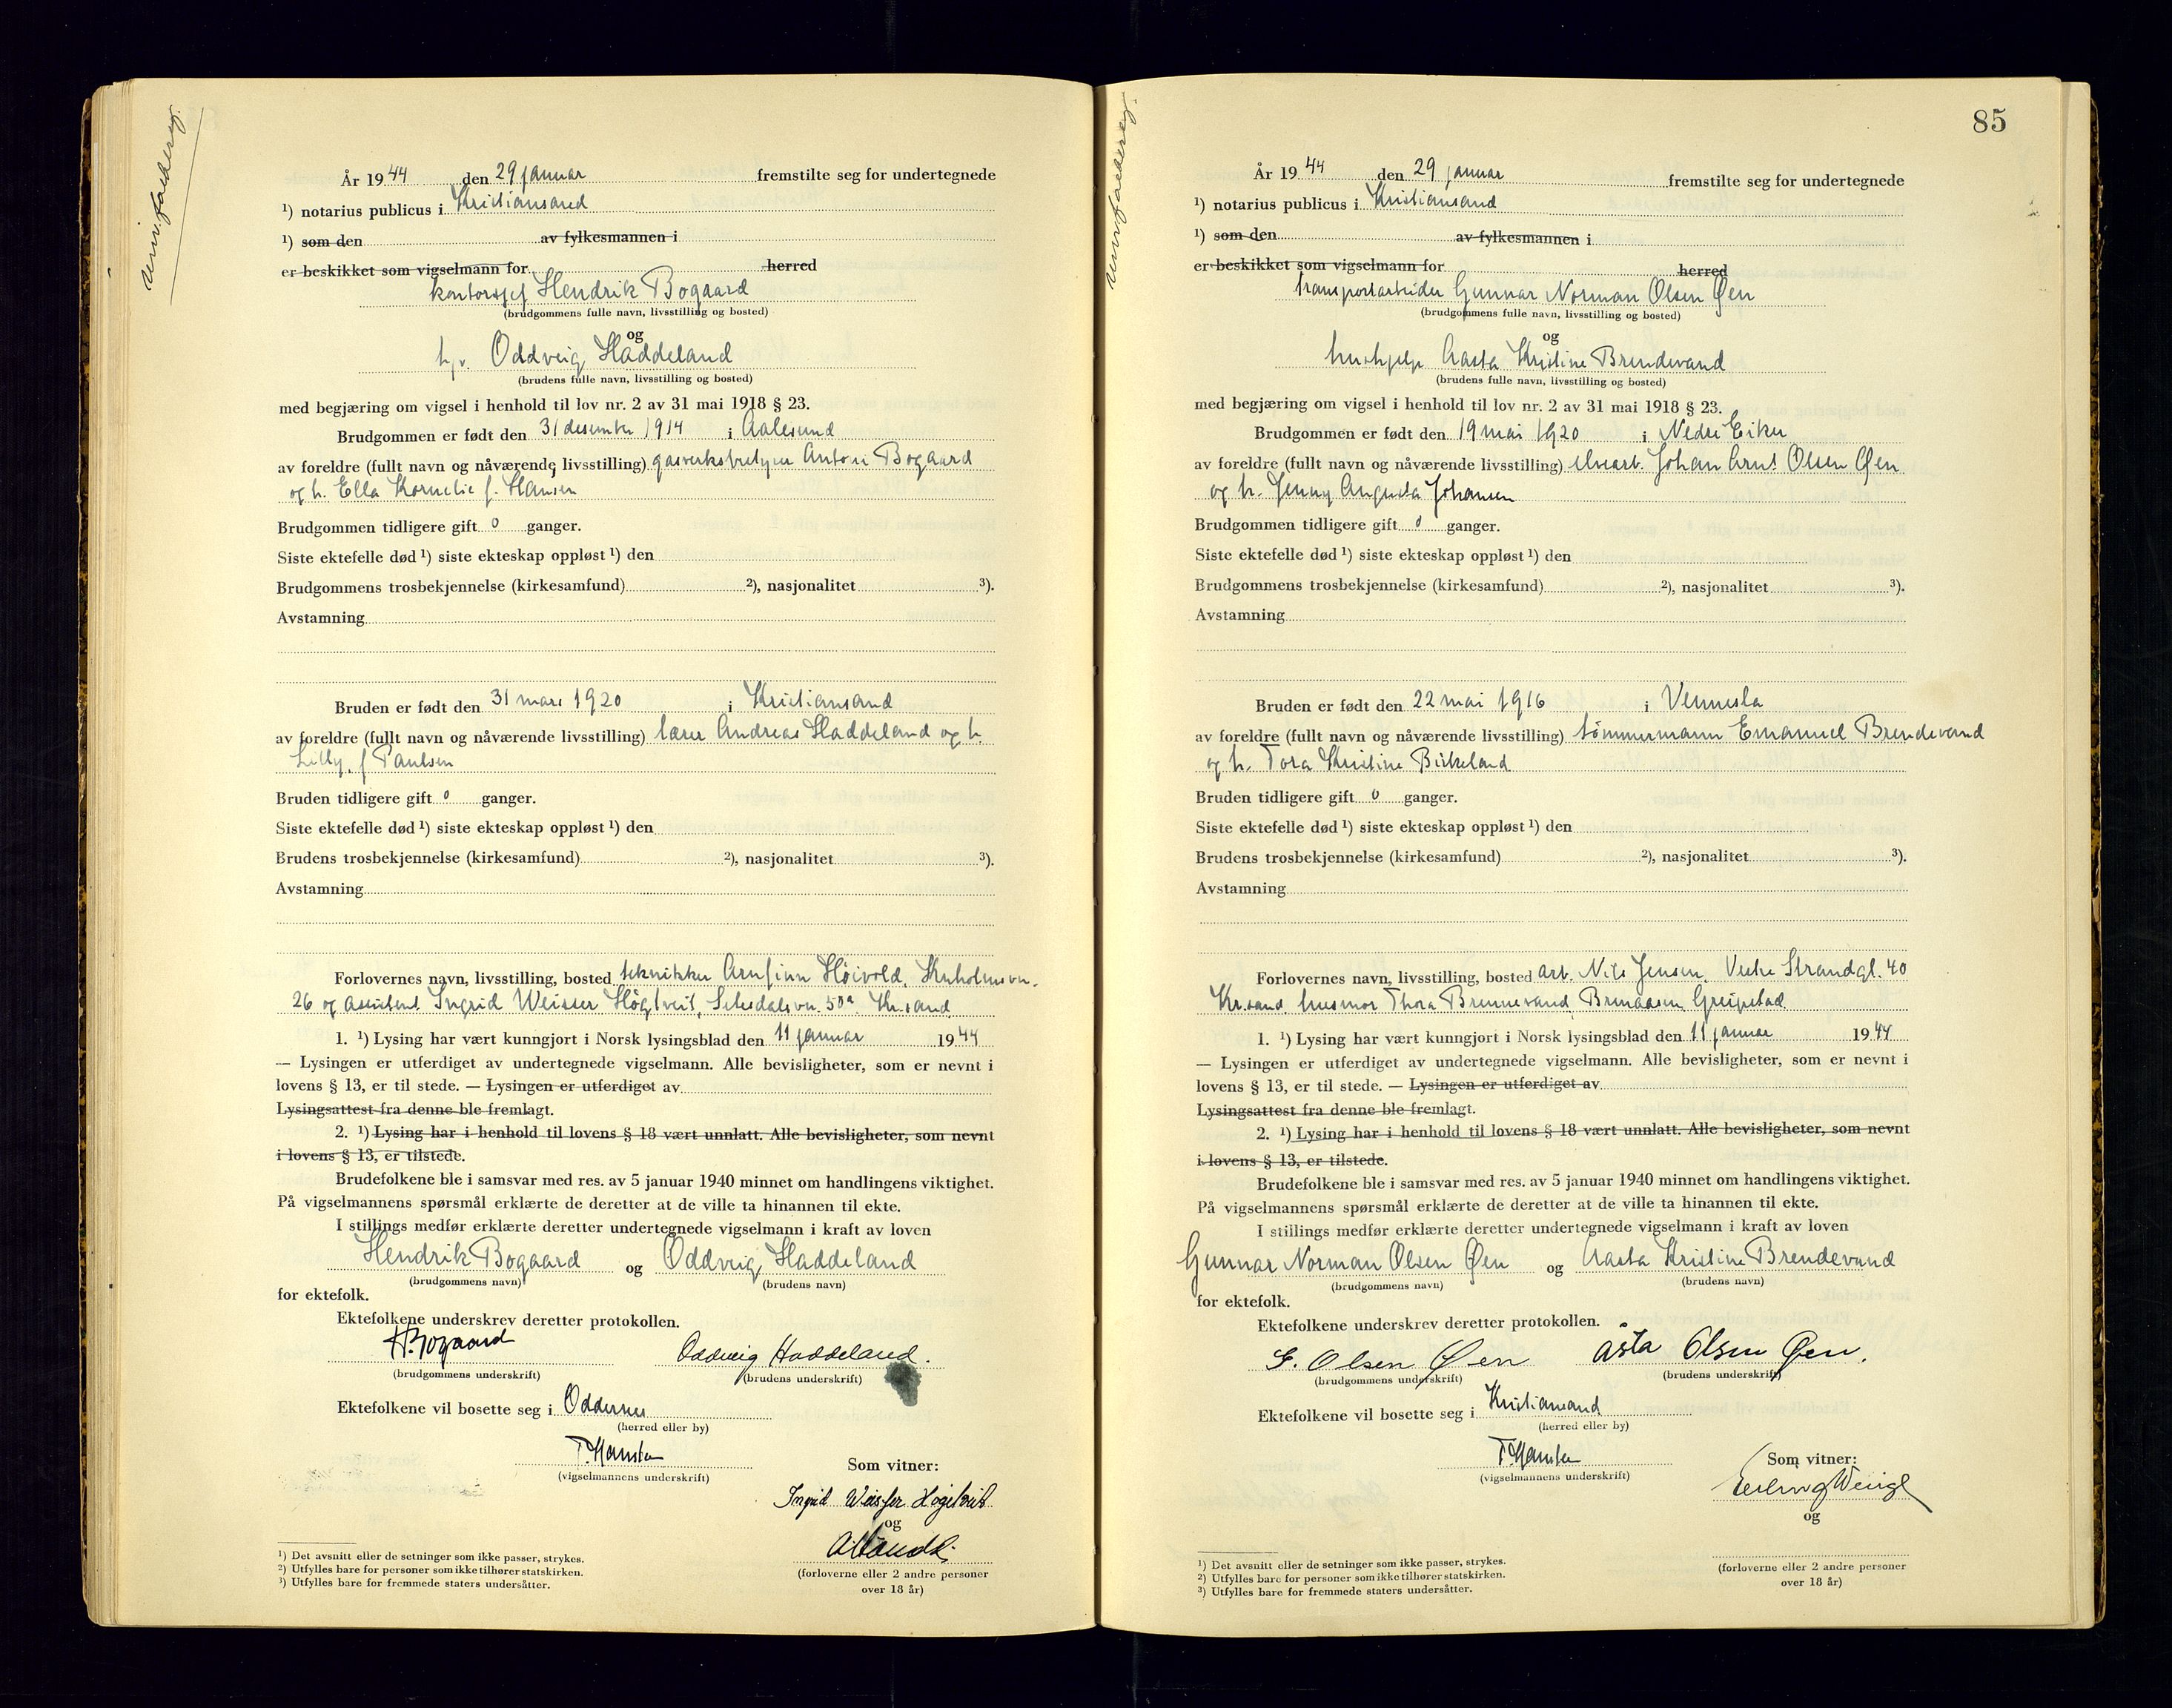 År 1944 den 29 januar fremstilte seg for undertegnede
¹) notarius publicus i Kristiansand
¹) som den av fylkesmannen i
er beskikket som vigselmann for herred
kontorsjef Hendrik Bogaard
(brudgommens fulle navn, livsstilling og bosted)
og
Oddveig Haddeland
(brudens fulle navn, livsstilling og bosted)
med begjæring om vigsel i henhold til lov nr. 2 av 31 mai 1918 § 23.
Brudgommen er født den 31 desember 1914 i Aalesund
av foreldre (fullt navn og nåværende livsstilling) gasverksbetjen Anton Bogaard
og h. Ella Kornelie f. Hansen
Brudgommen tidligere gift 0 ganger.
Siste ektefelle død ¹) siste ekteskap oppløst ¹) den
Brudgommens trosbekjennelse (kirkesamfund) ²), nasjonalitet ³).
Avstamning
Bruden er født den 31 mars 1920 i Kristiansand
av foreldre (fullt navn og nåværende livsstilling) lærer Andreas Haddeland og h.
Lilly f Paulsen
Bruden tidligere gift 0 ganger.
Siste ektefelle død ¹) siste ekteskap oppløst ¹) den
Brudens trosbekjennelse (kirkesamfund) ²), nasjonalitet ³).
Avstamning
Forlovernes navn, livsstilling, bosted tekniker Arnfinn Höivold, Kuholmsvn.
26 og assistent Ingrid Weisser Högtveit, Setesdalsvn. 50a Kr.sand
1. ¹) Lysing har vært kunngjort i Norsk lysingsblad den 11 januar 1944
— Lysingen er utferdiget av undertegnede vigselmann. Alle bevisligheter, som er nevnt i
lovens § 13, er til stede. — Lysingen er utferdiget av
Lysingsattest fra denne ble fremlagt.
2. ¹) Lysing har i henhold til lovens § 18 vært unnlatt. Alle bevisligheter, som nevnt
i lovens § 13, er tilstede.
Brudefolkene ble i samsvar med res. av 5 januar 1940 minnet om handlingens viktighet.
På vigselmannens spørsmål erklærte de deretter at de ville ta hinannen til ekte.
I stillings medfør erklærte deretter undertegnede vigselmann i kraft av loven
Hendrik Bogaard og Oddveig Haddeland
(brudgommens navn) (brudens navn)
for ektefolk.
Ektefolkene underskrev deretter protokollen.
H. Bogaard Oddveig Haddeland.
(brudgommens underskrift) (brudens underskrift)
Ektefolkene vil bosette seg i Oddernes
(herred eller by)
(vigselmannens underskrift)
Som vitner:
Ingrid Weisser Høgetveit
og
(forloverne eller 2 andre personer
over 18 år)
¹) Det avsnitt eller de setninger som ikke passer, strykes.
²) Utfylles bare for personer som ikke tilhører statskirken.
³) Utfylles bare for fremmede staters undersåtter.
85
År 1944 den 29 januar fremstilte seg for undertegnede
¹) notarius publicus i Kristiansand
¹) som den av fylkesmannen i
er beskikket som vigselmann for herred
transportarbeider Gunnar Norman Olsen Øen
(brudgommens fulle navn, livsstilling og bosted)
og
hushjelp Aasta Kristine Brendevand
(brudens fulle navn, livsstilling og bosted)
med begjæring om vigsel i henhold til lov nr. 2 av 31 mai 1918 § 23.
Brudgommen er født den 19 mai 1920 i Nedre Eiker
av foreldre (fullt navn og nåværende livsstilling) Johan Arnt Olsen Øen
og h. Jenny Augusta Johansen
Brudgommen tidligere gift 0 ganger.
Siste ektefelle død ¹) siste ekteskap oppløst ¹) den
Brudgommens trosbekjennelse (kirkesamfund) ²), nasjonalitet ³).
Avstamning
Bruden er født den 22 mai 1916 i Vennesla
av foreldre (fullt navn og nåværende livsstilling) tømmermann Emanuel Brendevand
og h. Tora Kristine Birkeland
Bruden tidligere gift 0 ganger.
Siste ektefelle død ¹) siste ekteskap oppløst ¹) den
Brudens trosbekjennelse (kirkesamfund) ²), nasjonalitet ³).
Avstamning
Forlovernes navn, livsstilling, bosted arb. Nils Jensen, Vestre Strandgt. 40
Kr.sand husmor Thora Brennevand Brenaasen Greipstad
1. ¹) Lysing har vært kunngjort i Norsk lysingsblad den 11 januar 1944
— Lysingen er utferdiget av undertegnede vigselmann. Alle bevisligheter, som er nevnt i
lovens § 13, er til stede. — Lysingen er utferdiget av
Lysingsattest fra denne ble fremlagt.
2. ¹) Lysing har i henhold til lovens § 18 vært unnlatt. Alle bevisligheter, som nevnt
i lovens § 13, er tilstede.
Brudefolkene ble i samsvar med res. av 5 januar 1940 minnet om handlingens viktighet.
På vigselmannens spørsmål erklærte de deretter at de ville ta hinannen til ekte.
I stillings medfør erklærte deretter undertegnede vigselmann i kraft av loven
Gunnar Norman Olsen Øen og Aasta Kristine Brendevand
(brudgommens navn) (brudens navn)
for ektefolk.
Ektefolkene underskrev deretter protokollen.
G. Olsen Øen Åsta Olsen Øen.
(brudgommens underskrift) (brudens underskrift)
Ektefolkene vil bosette seg i Kristiansand
(herred eller by)
(vigselmannens underskrift)
Som vitner:
og
(forloverne eller 2 andre personer
over 18 år)
¹) Det avsnitt eller de setninger som ikke passer, strykes.
²) Utfylles bare for personer som ikke tilhører statskirken.
³) Utfylles bare for fremmede staters undersåtter.